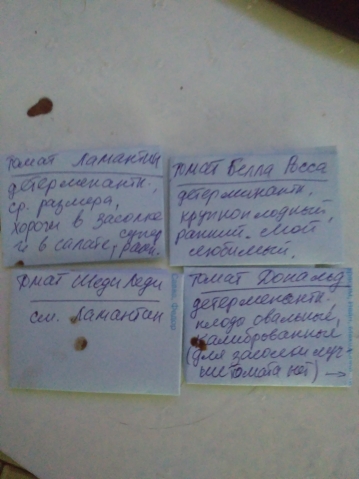 томат Ламантин
детерменантн.,
ср. размера,
хорош в засолке
и в салате, супер
ранн.
томат Белла Росса
детерминантн.
крупноплодный,
ранний. Мой
любимый.
томат Шеди Леди
см. Ламантин
томат Дональд
детерменантн.
плодо овальный,
калиброванные
(для засолки луч-
ше томата нет) →